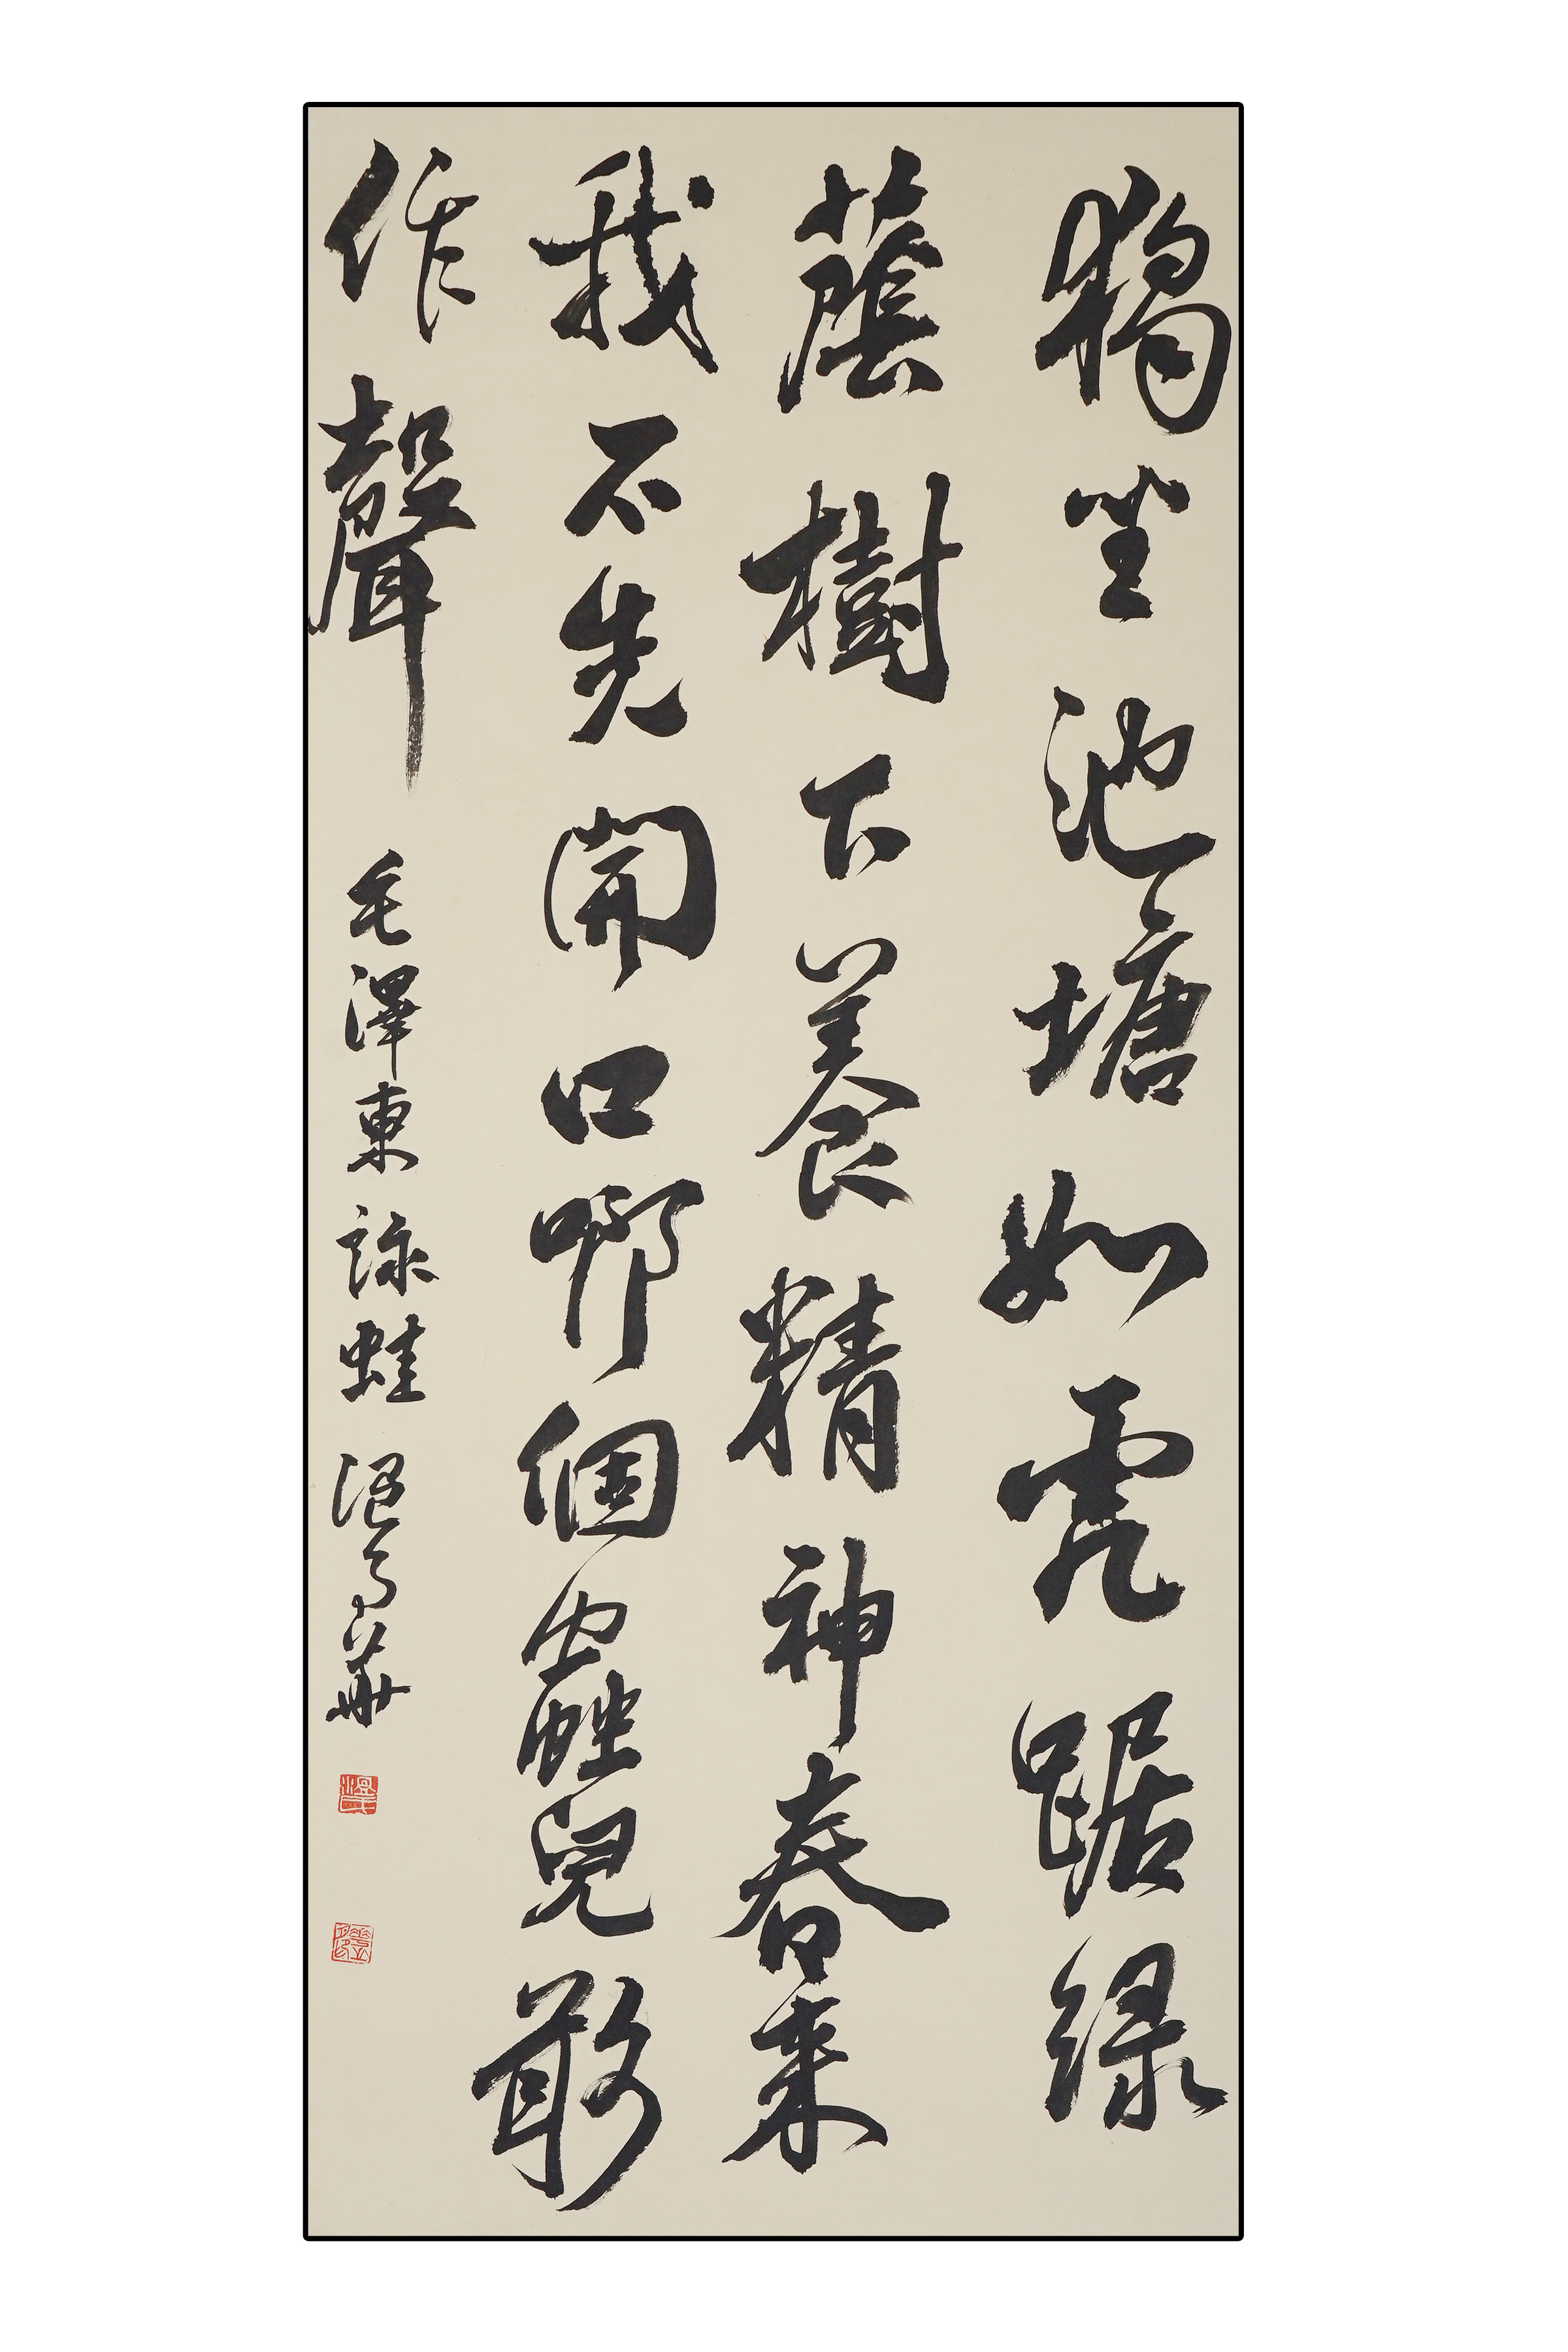 獨坐池塘如虎踞綠
蔭樹下養精神春來
我不先開口哪個蟲兒敢
作聲
毛澤東詠蛙 溫華